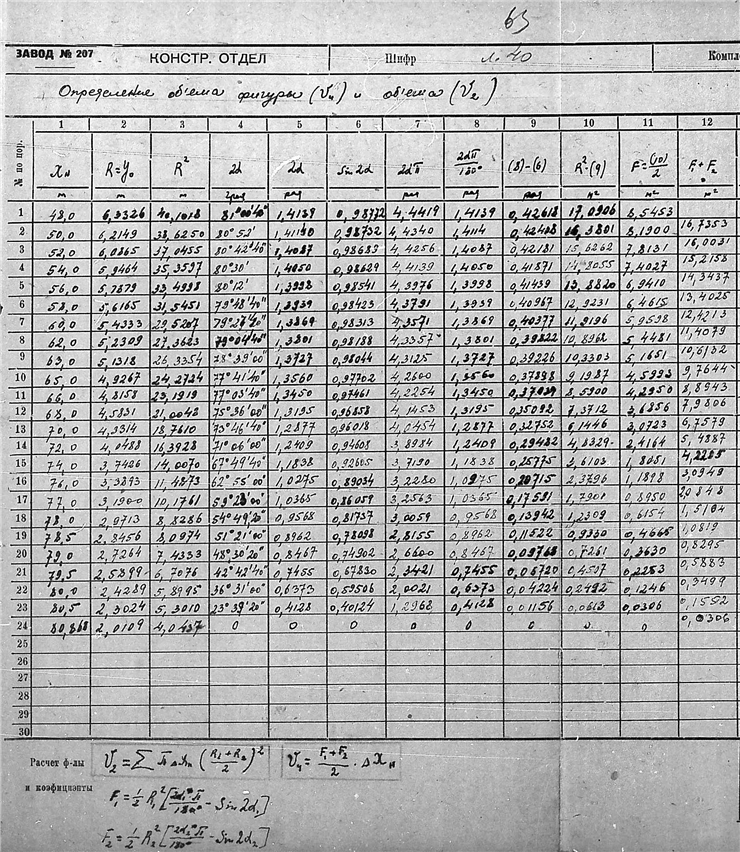 63
ЗАВОД № 207 КОНСТР. ОТДЕЛ Шифр л. 40
Определение объема фигуры (V₄) и объема (V₂)
№ по пор. 1 2 3 4 5 6 7 8 9 10 11 12
Xн R=y₀ R² 2α 2α Sin 2α 2απ 2απ/180° (8)-(6) R²·(9) F=(10)/2 F₁+F₂
м м м град рад рад м² м²
1 48,0 6,3326 40,1018 81°00'40" 1,4139 0,98772 4,4419 1,4139 0,42618 17,0906 8,5453
2 50,0 6,2149 38,6250 80°52' 0,98732 4,4340 1,4114 0,42408 16,3801 8,1900 16,7353
3 52,0 6,0865 37,0455 80°42'40" 1,4087 0,98689 4,4256 1,4087 0,42181 15,6262 7,8131 16,0031
4 54,0 5,9464 35,3597 80°30' 1,4050 0,98629 4,4139 1,4050 0,41871 14,8055 7,4027 15,2158
5 56,0 5,7879 33,4998 80°12' 1,3998 0,98541 4,3976 1,3998 0,41439 13,8820 6,9410 14,3437
6 58,0 5,6165 31,5451 79°48'40" 1,3939 0,98423 4,3791 1,3939 0,40967 12,9231 6,4615 13,4025
7 60,0 5,4333 29,5207 79°27'40" 1,3869 0,98313 4,3571 1,3869 0,40377 11,9196 5,9598 12,4213
8 62,0 5,2309 27,3623 79°04'40" 1,3801 0,98188 4,3357 1,3801 0,39822 10,8962 5,4481 11,4079
9 63,0 5,1318 26,3354 78°39'00" 1,3727 0,98044 4,3125 1,3727 0,39226 10,3303 5,1651 10,6132
10 65,0 4,9267 24,2724 77°41'40" 1,3560 0,97702 4,2600 1,3560 0,37898 9,1987 4,5993 9,7644
11 66,0 4,8158 23,1919 77°03'40" 1,3450 0,97461 4,2254 1,3450 0,37039 8,5900 4,2950 8,8943
12 68,0 4,5831 21,0048 75°36'00" 1,3195 0,96858 4,1453 1,3195 0,35092 7,3712 3,6856 7,9806
13 70,0 4,3314 18,7610 73°46'40" 1,2877 0,96018 4,0454 1,2877 0,32752 6,1446 3,0723 6,7579
14 72,0 4,0488 16,3928 71°06'00" 1,2409 0,94608 3,8984 1,2409 0,29482 4,8329 2,4164 5,4887
15 74,0 3,7426 14,0070 67°49'40" 1,1838 0,92605 3,7190 1,1838 0,25775 3,6103 1,8051 4,2215
16 76,0 3,3893 11,4873 62°55'00" 1,0275 0,89034 3,2280 1,0975 0,20715 2,3796 1,1898 3,0949
17 77,0 3,1900 10,1761 59°23'00" 1,0365 0,86059 3,2563 1,0365 0,17591 1,7901 0,8950 2,0848
18 78,0 2,9713 8,8286 54°49'20" 0,9568 0,81737 3,0059 0,9568 0,13942 1,2309 0,6154 1,5104
19 78,5 2,8456 8,0974 51°21'00" 0,8962 0,78098 2,8155 0,8962 0,11522 0,9330 0,4665 1,0819
20 79,0 2,7264 7,4333 48°30'20" 0,8467 0,74902 2,6600 0,8467 0,09768 0,7261 0,3630 0,8295
21 79,5 2,5899 6,7076 42°42'40" 0,7455 0,67830 2,3421 0,7455 0,06720 0,4507 0,2253 0,5883
22 80,0 2,4289 5,8995 36°31'00" 0,6373 0,59506 2,0021 0,6373 0,04224 0,2492 0,1246 0,3499
23 80,5 2,3024 5,3010 23°39'20" 0,4128 0,40124 1,2968 0,4128 0,01156 0,0613 0,0306 0,1552
24 80,868 2,0109 4,0437 0 0 0 0 0 0 0 0 0,0306
25
26
27
28
29
30
Расчет ф-лы и коэфициенты V₂ = ∑ π ΔXн ((R₁+R₂)/2)² V₄ = (F₁+F₂)/2 · ΔXн
F₁ = ½ R₁² [2α₁°π/180° - Sin 2α₁]
F₂ = ½ R₂² [2α₂°π/180° - Sin 2α₂]